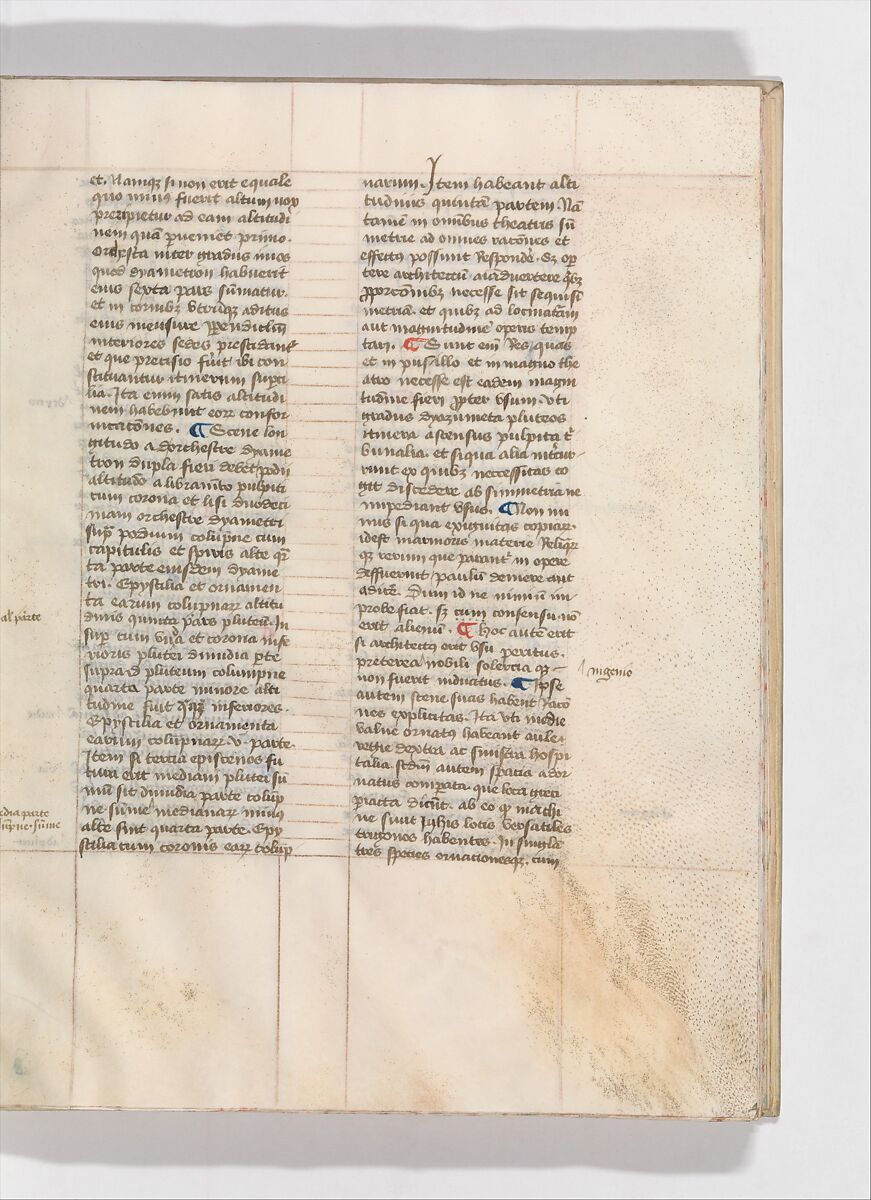 et. Namq3 si non erit equale
quo minus fuerit altum vox
precipietur ad eam altitudi
nem quā perueniet primo.
Orchesta inter gradus imos
quod dyametron habuerit
eius sexta pars sumatur.
et in cornibꝫ vtrūqꝫ aditus
eius mensure
interiores sedes
et que precisio fuīt ibi con
stituantur itinerum
lia. Ita enim satis altitudi
nem habebunt eorꝝ confor
nicatōnes. ¶ Scene lon
gitudo ad orchestre dyame
tron dupla fieri debet podii
altitudo a libramto pulpiti
cum corona et lisi duodeci
mam orchestre dyametri
sup podium colupne cum
capitulis et spiris alte qr
ta parte eiusdem dyame
tri. Epystilia et ornamen
ta earum colupnarꝝ altitu
dinis quinta pars pluteū. In
sup cum et corona infe
rioris plutei dimidia pte
supra d pluteum columpne
quarta parte minore alti
tudine inferiores.
Epystilia et ornamenta
earum colupnarꝝ v. parte.
Item si tercia episcenos fu
tura erit mediani plutei su
mū sit dimidia parte colup
ne sume medianarꝝ minꝰ
alte sint quarta parte. Epy
stilia cum coronis earꝝ colup
narum. Item habeant alti
tudinus quintā partem. Nā
tamē in omnibus theatris sū
metrie ad omnes racōnes et
effectꝰ possunt Respondē. sꝫ opr
tere architectū aiaduertere qbꝫ
ꝓporconibꝫ necesse sit sequi si
metriā. et quibꝫ ad locinatam
aut magnitudinē operis temp
tari. ¶ Sunt enī Res quas
et in pusallo et in magno the
atro necesse est eadem magni
tudine fieri ꝓpter vsum. vti
gradus dyazumeta pluteos
itinera ascensus pulpita tr
bunalia. et siqua alia
runt ex quibꝫ necessitas co
git discedere ab simmetria ne
impediant vsus. ¶ Non mi
nus si qua exiguitas copiarꝝ.
idest marmoris materie Reliqrꝝ
qꝫ rerum que parant in opere
deffuerint paulū demere aut
adicē. Dum id ne nimiū im
probe fiat. sꝫ cum consensu nō
erit alienū. ¶ Hoc autē erit
si architectꝰ erit vsu peritus.
preterea nobili solercia qꝫ
non fuerit viduatus. ¶ Ipse
autem scene suas habent raco
nes explicitas. Ita vti medie
value ornatꝰ habeant aule
regie dextra ac sinistra hospi
talia. scdm autem spacia ador
natus compata. que loca greci
piacta dicūt. ab eo qꝫ machi
ne sunt in hiis locis versatiles
trigonos habentes. In singula
tres species ornationesqꝫ. cum
al' parte
dia parte
lūpne. sūme
ingenio